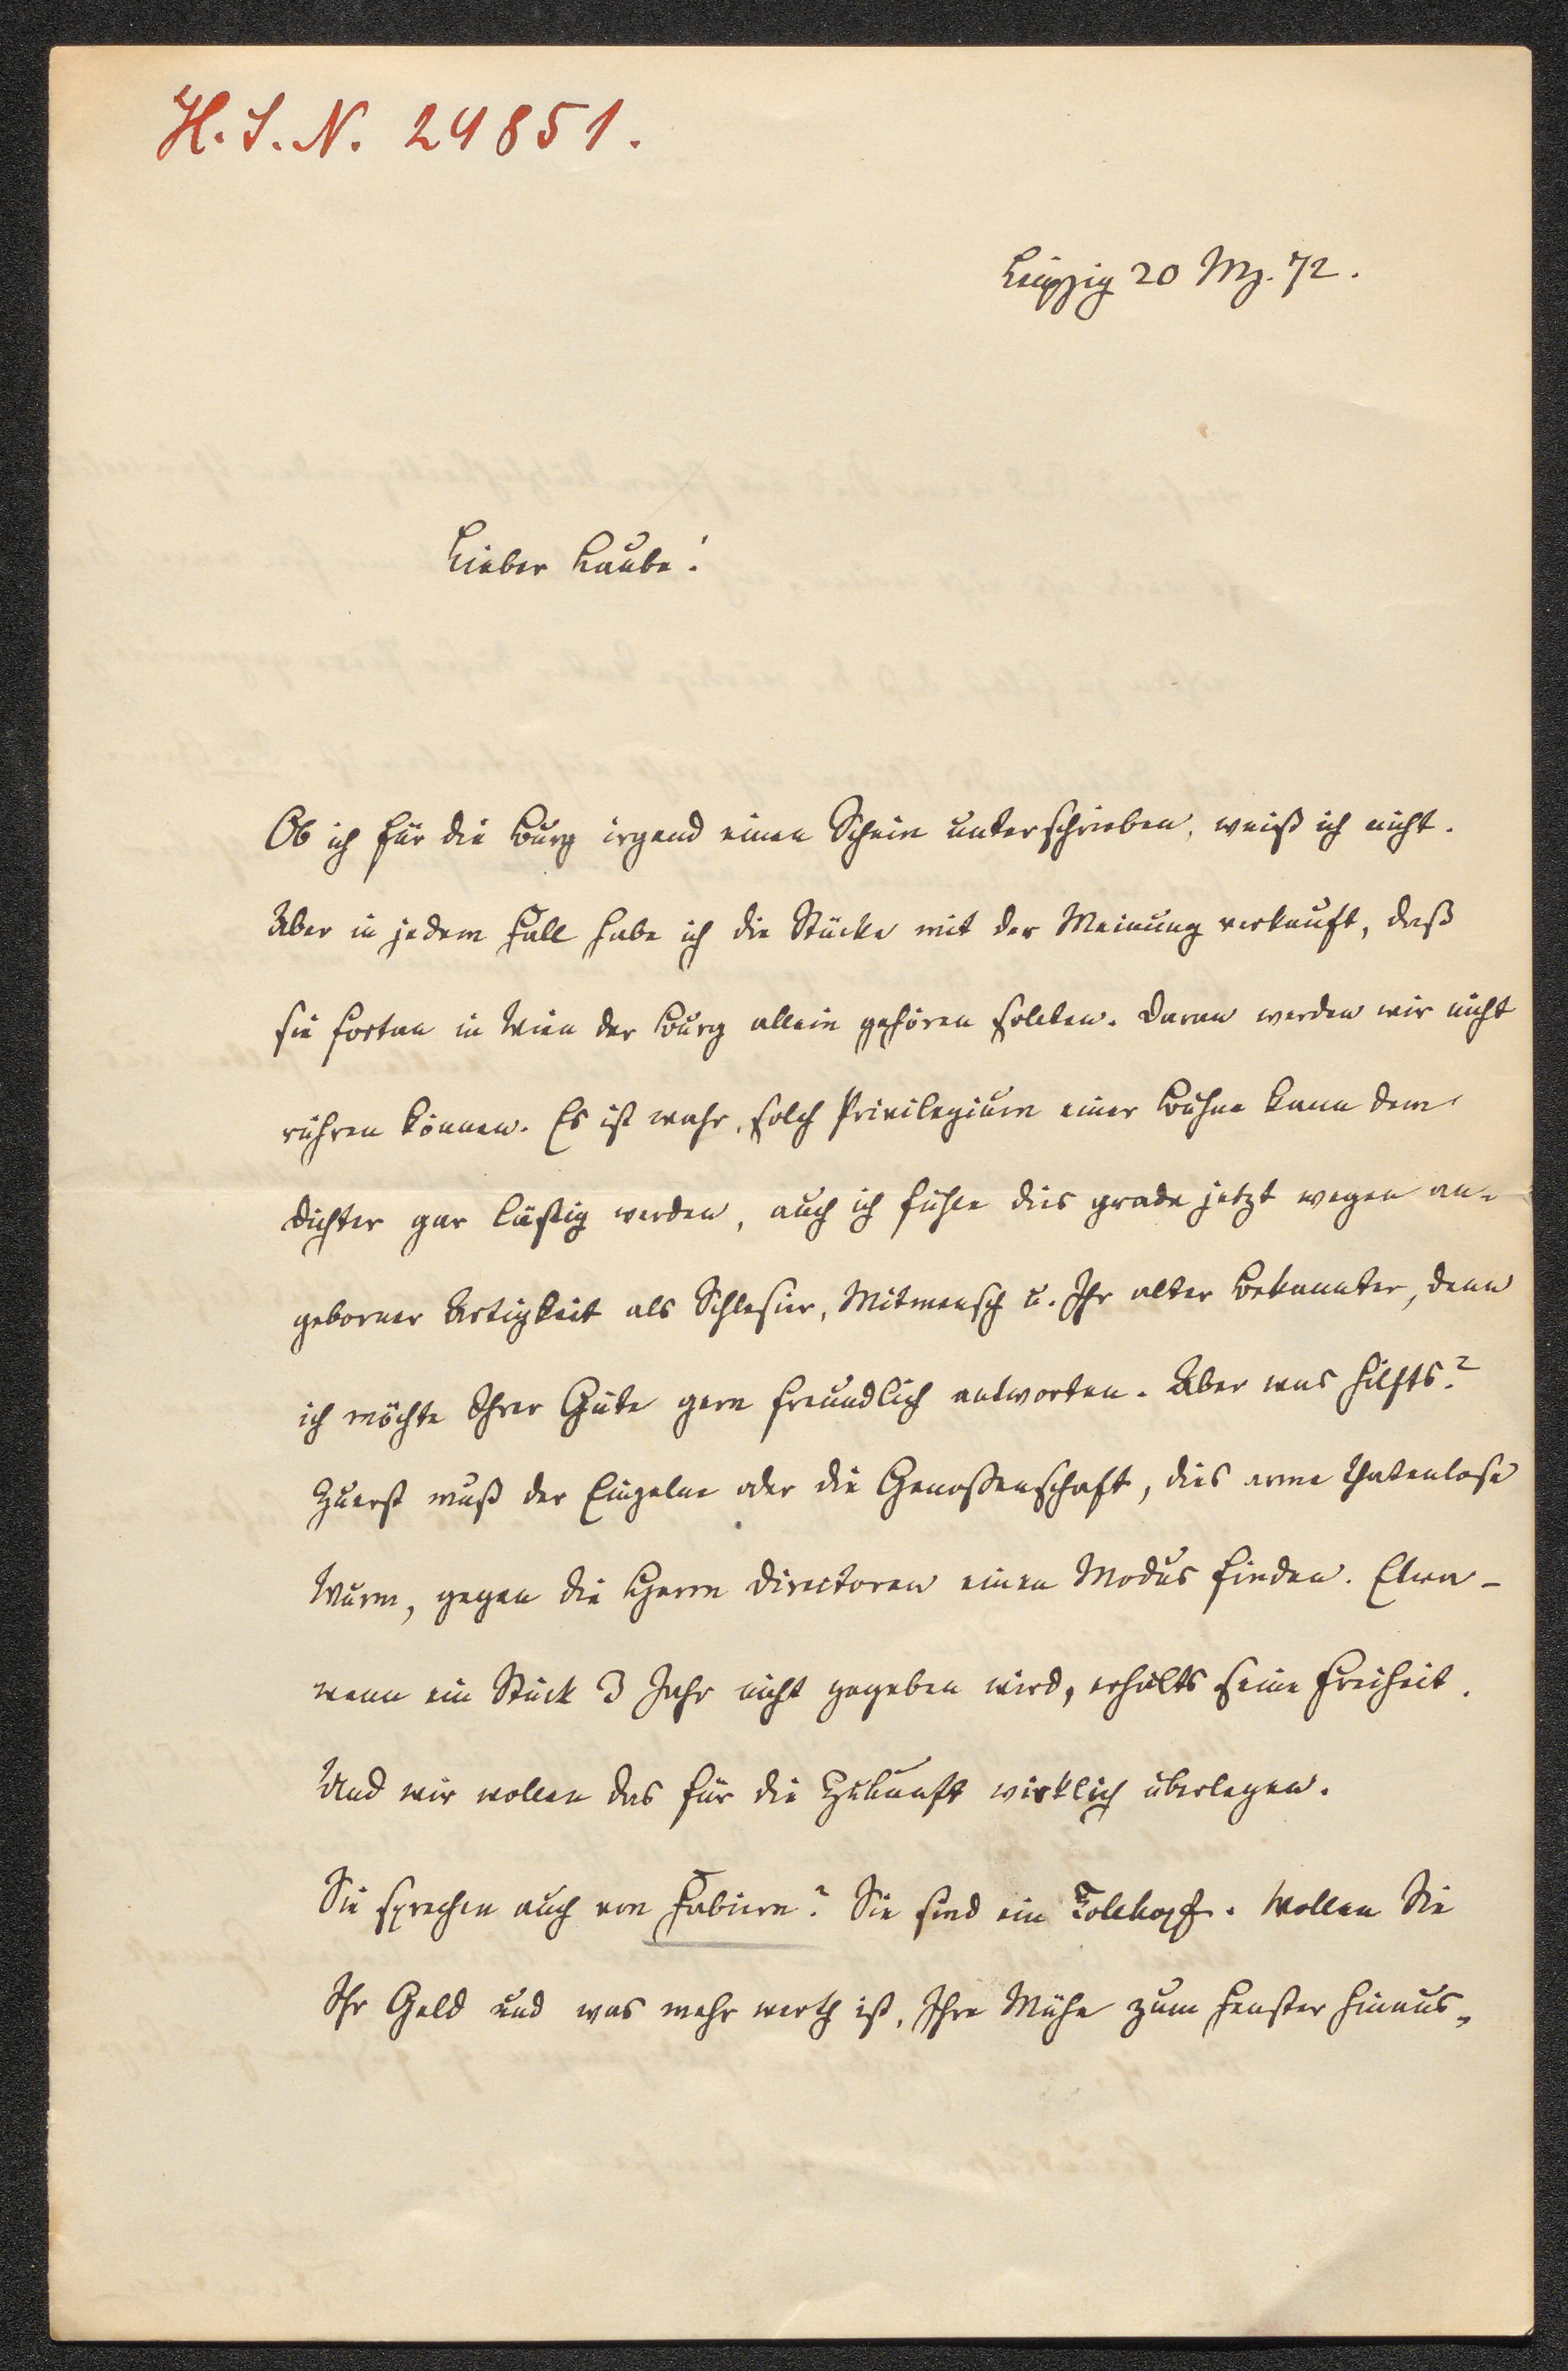 H. I. N. 24851.
Leipzig 20 Mz. 72.
Lieber Laube!
Ob ich für die Burg irgend einen Schein unterschrieben, weiß ich nicht.
Aber in jedem Fall habe ich die Stücke mit der Meinung verkauft, daß
sie fortan in Wien der Burg allein gehören sollten. Daran werden wir nicht
rühren können. Es ist wahr, solch Privilegium einer Bühne kann dem
Dichter gar lästig werden, auch ich fühle dies grade jetzt wegen an-
geborner Artigkeit als Schlesier, Mitmensch u. Ihr alter Bekannter, denn
ich möchte Ihrer Güte gern freundlich antworten. Aber was hilfts?
Zuerst muß der Einzelne oder die Genoßenschaft, dies arme thatenlose
Wurm, gegen die Herrn Directoren einen Modus finden. Etwa –
wenn ein Stück 3 Jahr nicht gegeben wird, erhälts seine Freiheit.
Und wir wollen das für die Zukunft wirklich überlegen.
Sie sprechen auch von Fabiern? Sie sind ein Tollkopf. Wollen Sie
Ihr Geld und was mehr werth ist, Ihre Mühe zum Fenster hinaus-